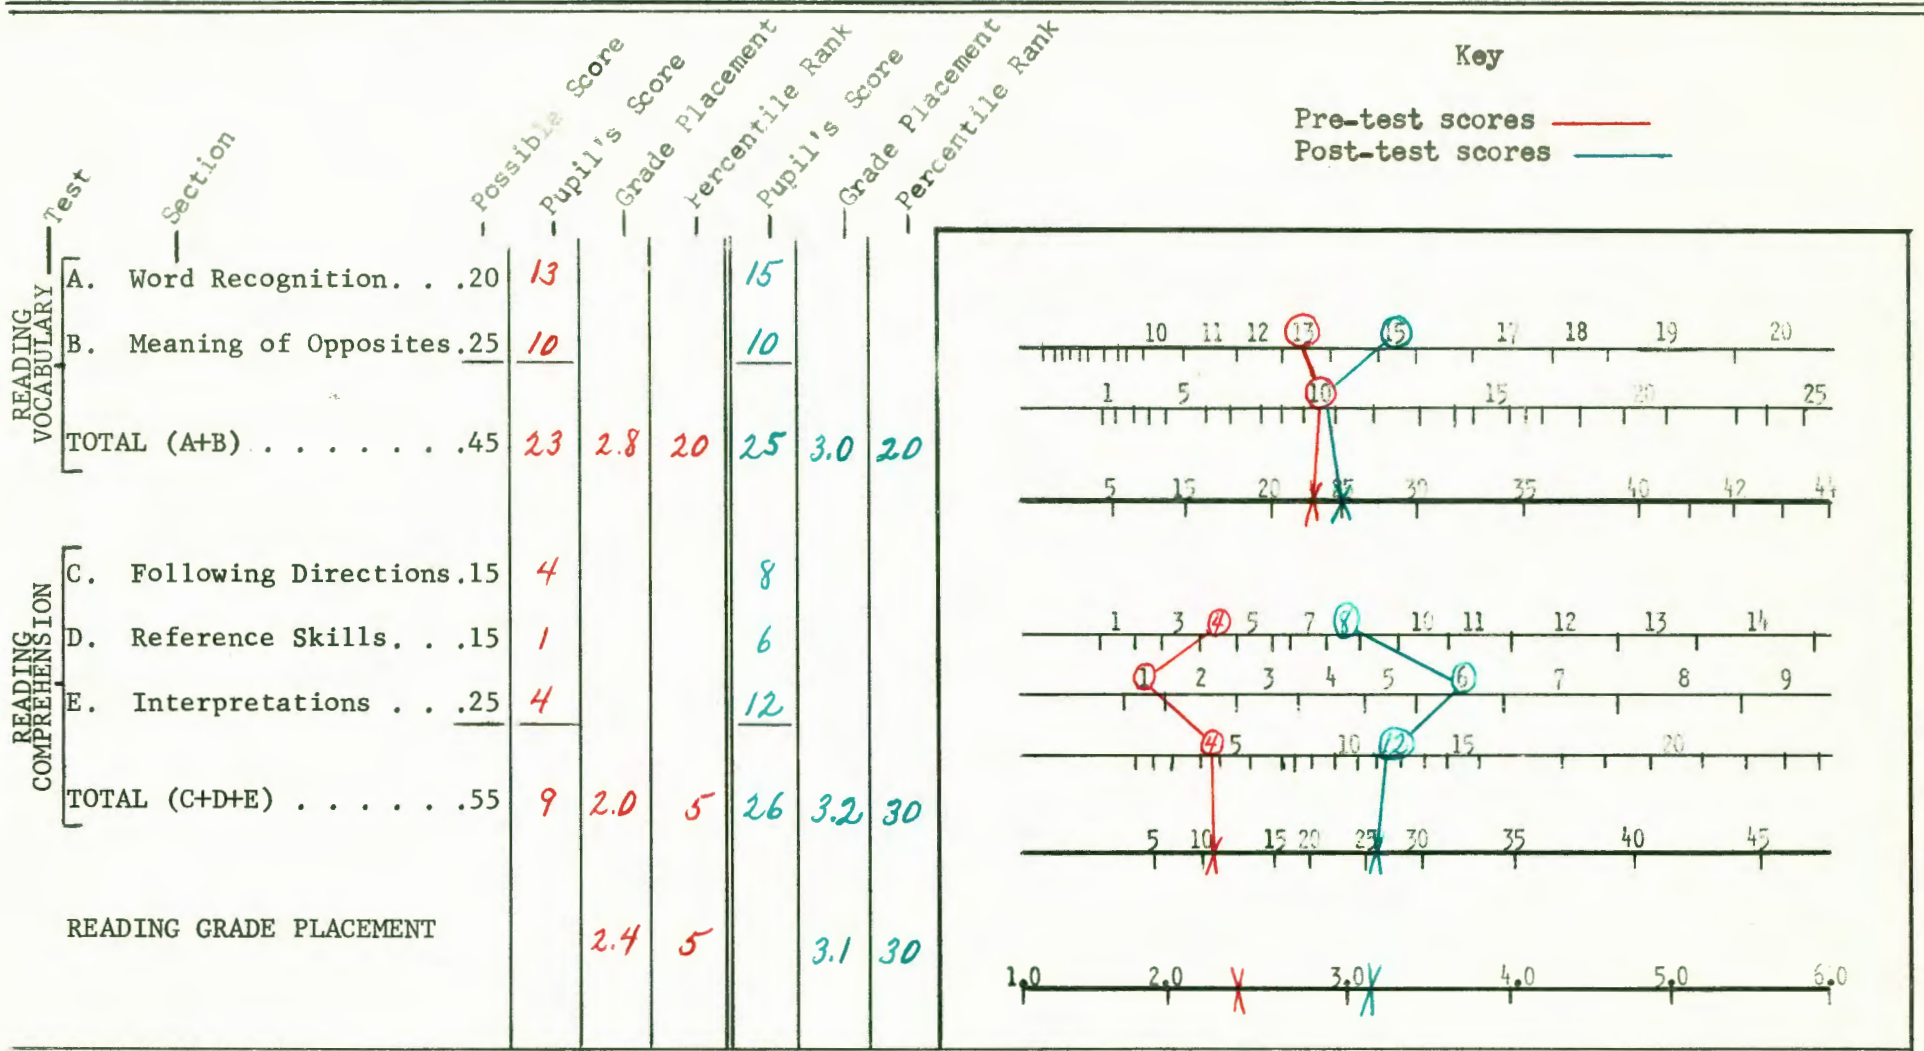 Key
Pre-test scores
Post-test scores
Test
Section
Possible Score
Pupil's Score
Grade Placement
Percentile Rank
Pupil's Score
Grade Placement
Percentile Rank
READING VOCABULARY
A. Word Recognition. . .20 13 15
B. Meaning of Opposites.25 10 10
TOTAL (A+B) . . . . . . .45 23 2.8 20 25 3.0 20
READING COMPREHENSION
C. Following Directions.15 4 8
D. Reference Skills. . .15 1 6
E. Interpretations . . .25 4 12
TOTAL (C+D+E) . . . . . .55 9 2.0 5 26 3.2 30
READING GRADE PLACEMENT 2.4 5 3.1 30
10 11 12 13 15 17 18 19 20
1 5 10 15 20 25
5 15 20 25 30 35 40 42 44
1 3 4 5 7 8 10 11 12 13 14
1 2 3 4 5 6 7 8 9
4 5 10 12 15 20
5 10 15 20 25 30 35 40 45
1.0 2.0 3.0 4.0 5.0 6.0